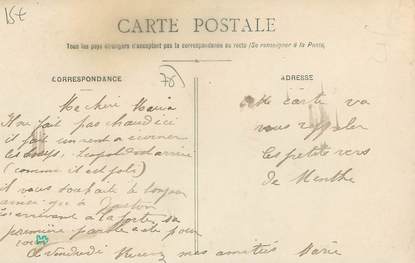 15€
CARTE POSTALE
Tous les pays étrangers n'acceptent pas la correspondance au recto (Se renseigner à la Poste)
CORRESPONDANCE
ADRESSE
Ma chère Maria
Il ne fait pas chaud ici
il fait un vent a ecorner
les
(comme il est poli)
il vous souhaite le bonjour
ainsi qu'à Gaston
En arrivant à la porte sa
première parole a été pour
vous
A vendredi mes amitiés Marie
Cette carte va
vous rappeler
Les petits vers
de Menthe